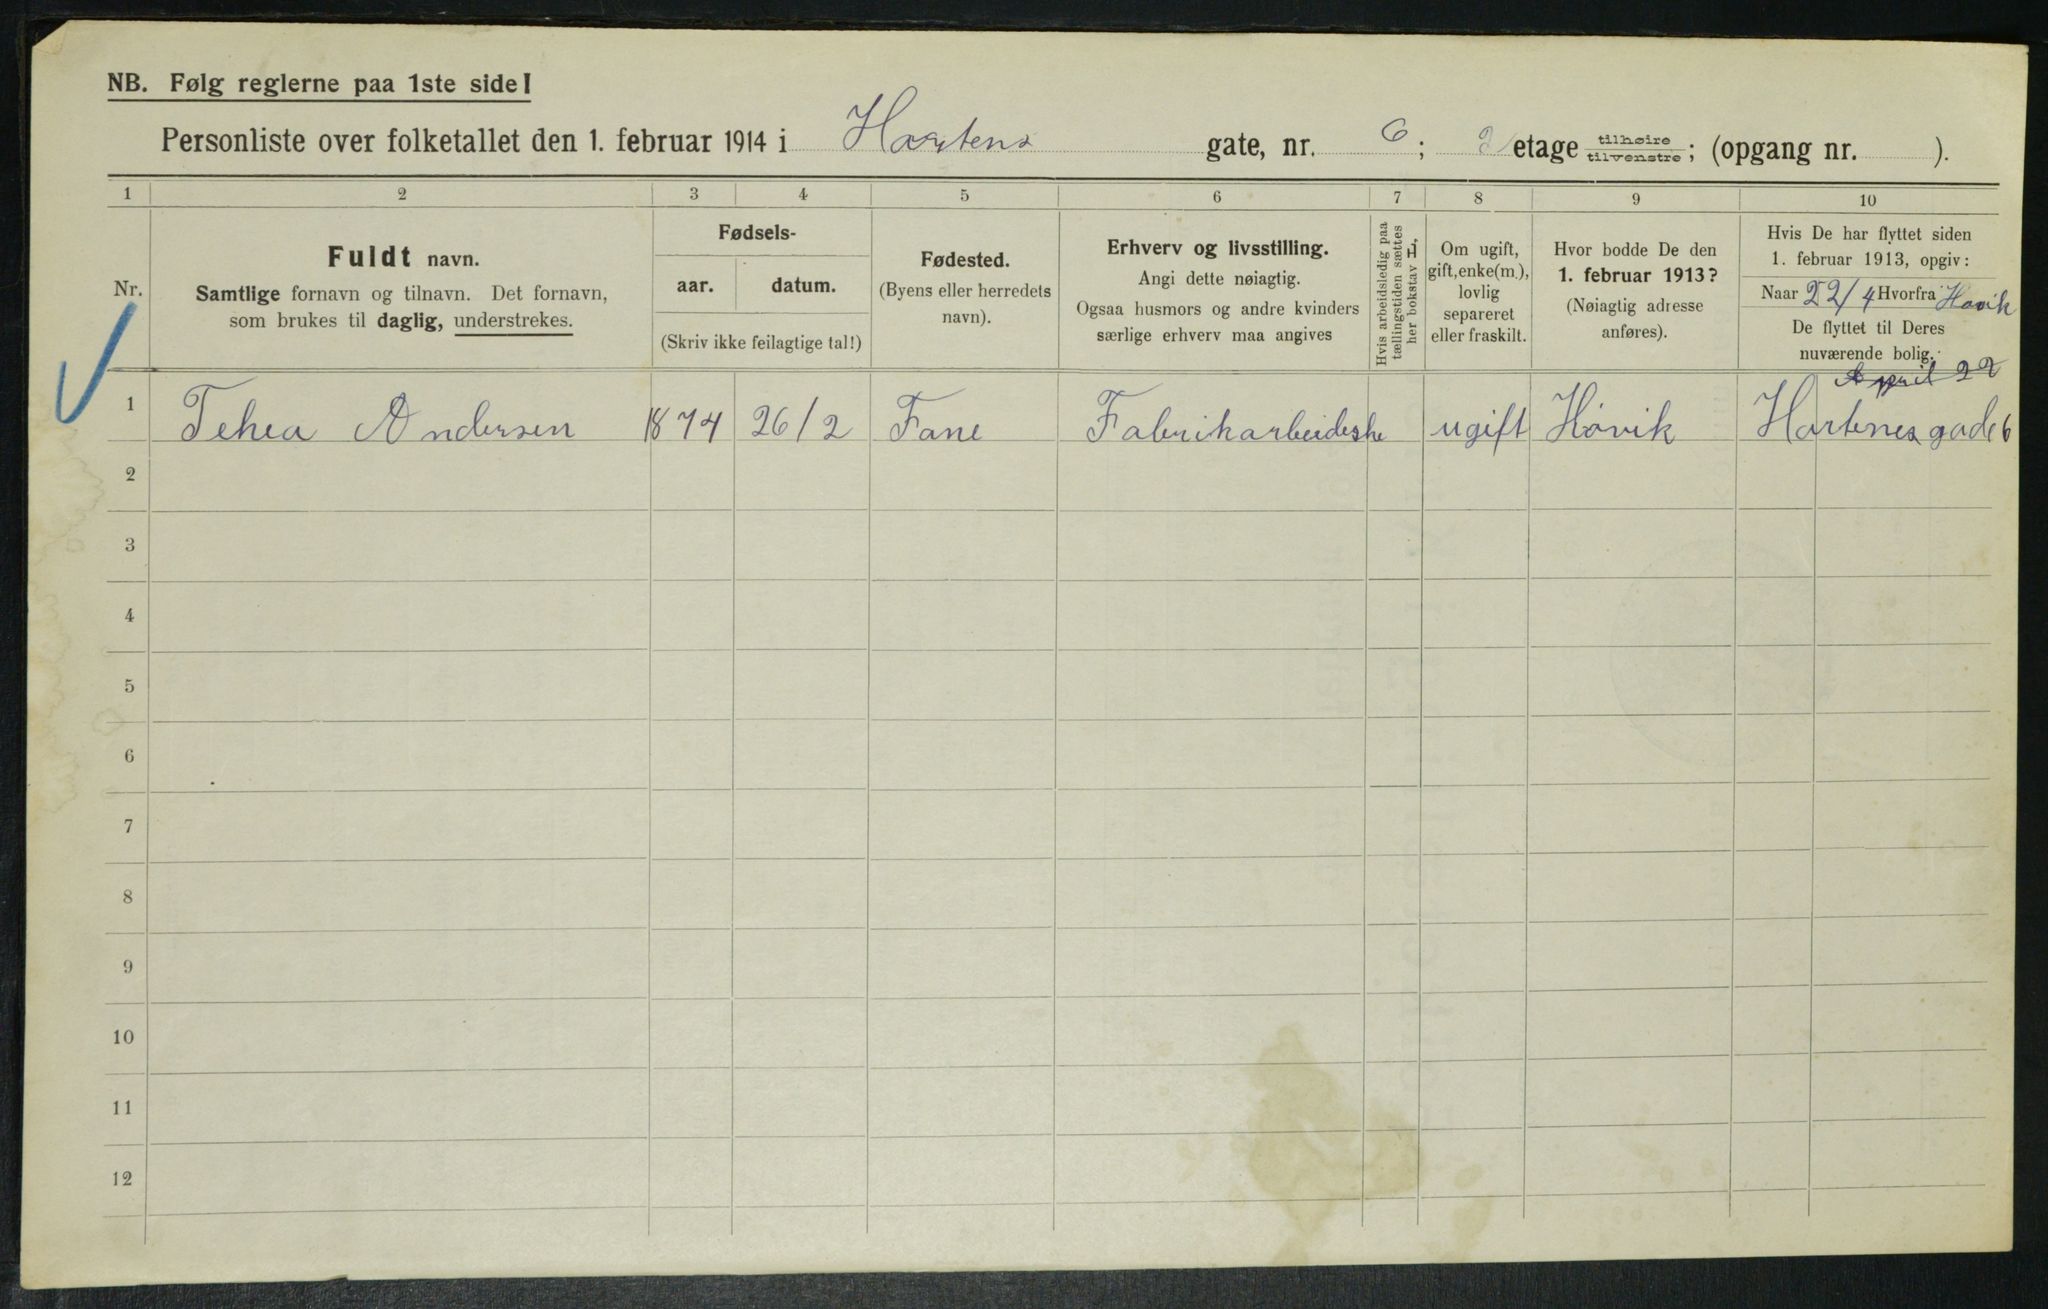 NB. Følg reglerne paa 1ste side!
Personliste over folketallet den 1. februar 1914 i Hartens gate, nr. 6; 2 etage tilhøire tilvenstre; (opgang nr. ).
1 2 3 4 5 6 7 8 9 10
Nr.
Fuldt navn.
Samtlige fornavn og tilnavn. Det fornavn,
som brukes til daglig, understrekes.
Fødsels-
aar. datum.
(Skriv ikke feilagtige tal!)
Fødested.
(Byens eller herredets
navn).
Erhverv og livsstilling.
Angi dette nøiagtig.
Ogsaa husmors og andre kvinders
særlige erhverv maa angives
Hvis arbeidsledig paa
tællingstiden sættes
her bokstav L.
Om ugift,
gift, enke(m.),
lovlig
separeret
eller fraskilt.
Hvor bodde De den
1. februar 1913?
(Nøiagtig adresse
anføres).
Hvis De har flyttet siden
1. februar 1913, opgiv:
Naar 22/4 Hvorfra Havik
De flyttet til Deres
nuværende bolig.
April 22
1 Tehea Andersen 1874 26/2 Fane Fabrikarbeideske ugift Hövik Hartenes gade 6
2
3
4
5
6
7
8
9
10
11
12